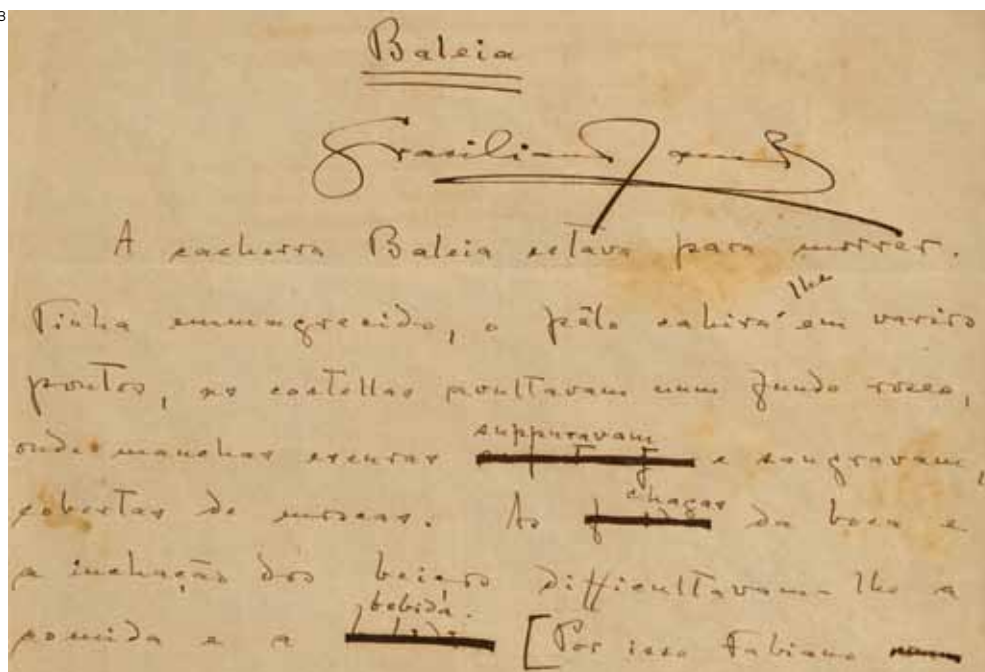 Baleia
Graciliano Ramos
A cachorra Baleia estava para morrer.
lhe
Tinha emmagrecido, o pêlo cahira em varios
pontos, as costellas avultavam num fundo roseo,
suppuravam
onde manchas escuras e sangravam,
chagas
cobertas de moscas. As da boca e
a inchação dos beiços difficultavam-lhe a
bebida.
comida e a [Por isso Fabiano